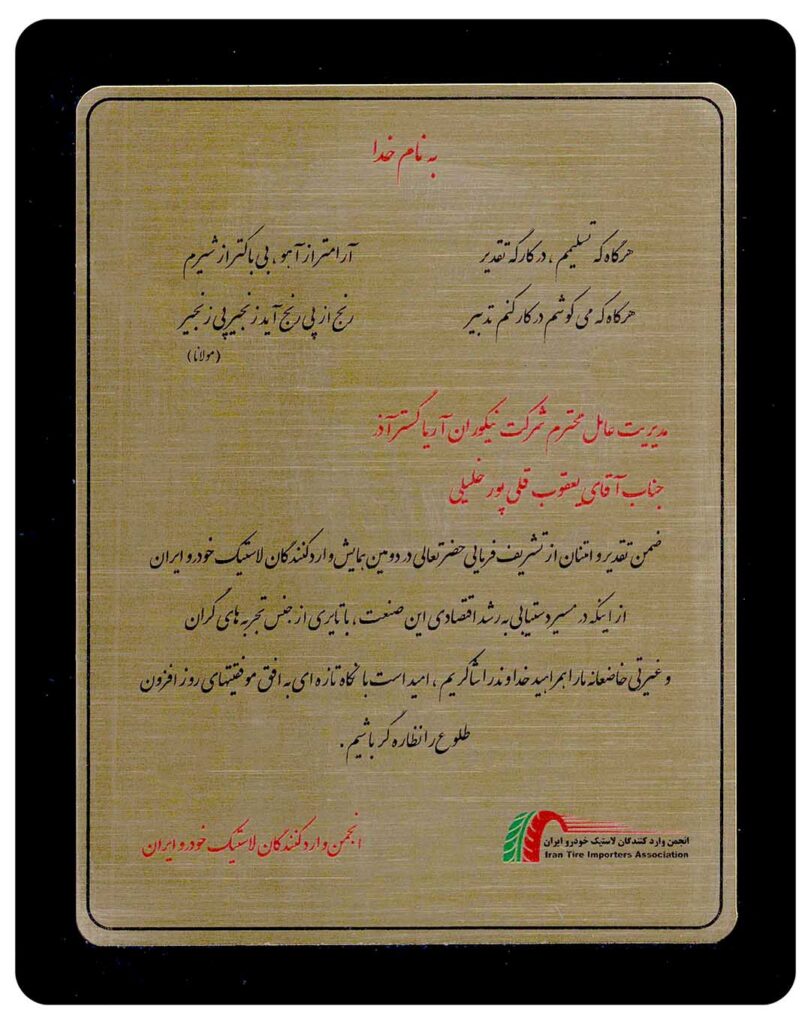 به نام خدا
هرگاه که تسلیمم ، در کارگه تقدیر آرامتر از آهو ، بی باکتر از شیرم
هرگاه که می کوشم در کار کنم تدبیر رنج از پی رنج آید زنجیر پی زنجیر
(مولانا)
مدیریت عامل محترم شرکت نیکوران آریا گستر آذر
جناب آقای یعقوب قلی پور خلیلی
ضمن تقدیر و امتنان از تشریف فرمایی حضرتعالی در دومین همایش وارد کنندگان لاستیک خودرو ایران
از اینکه در مسیر دستیابی به رشد اقتصادی این صنعت ، با تایری از جنس تجربه های گران
و غیرتی خاضعانه ما را همراهید خداوند را شاکریم ، امید است با نگاه تازه ای به افق موفقیتهای روز افزون
طلوع را نظاره گر باشیم .
انجمن وارد کنندگان لاستیک خودرو ایران
انجمن وارد کنندگان لاستیک خودرو ایران
Iran Tire Importers Association